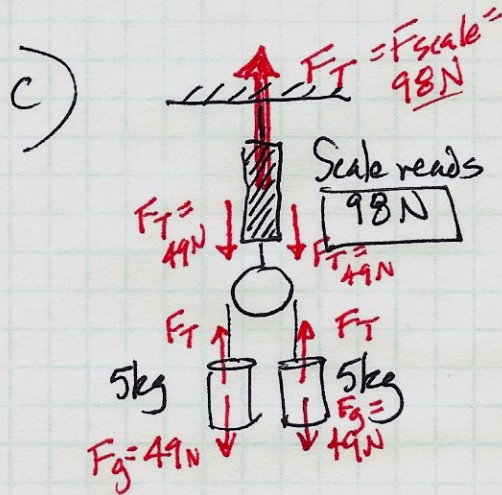 C)
F_T = Fscale =
98N
Scale reads
98 N
F_T =
49N
F_T =
49N
F_T
F_T
5kg
5kg
Fg = 49N
Fg =
49N